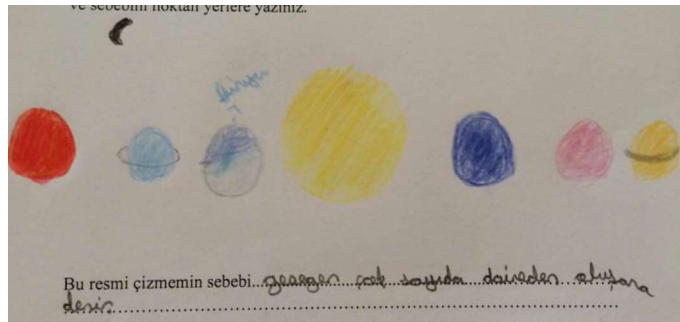 ve sebebini noktalı yerlere yazınız.
dünya
Bu resmi çizmemin sebebi...gezegen çok sayıda daireden oluşara
denir......